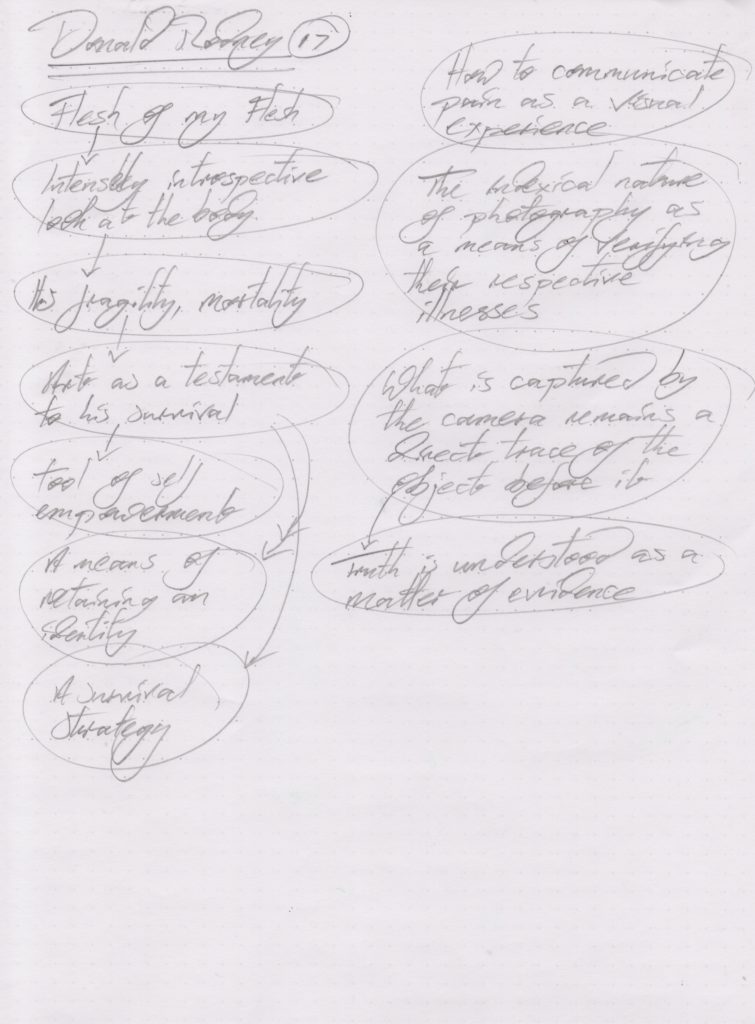 Donald Rodney 17
Flesh of my Flesh
Intensely introspective
look at the body.
His fragility, mortality
Art as a testament
to his survival
tool of self
empowerment
A means of
retaining an
identity
A survival
strategy
How to communicate
pain as a visual
experience
The indexical nature
of photography as
a means of verifying
their respective
illnesses
What is captured by
the camera remains a
direct trace of the
object before it
Truth is understood as a
matter of evidence